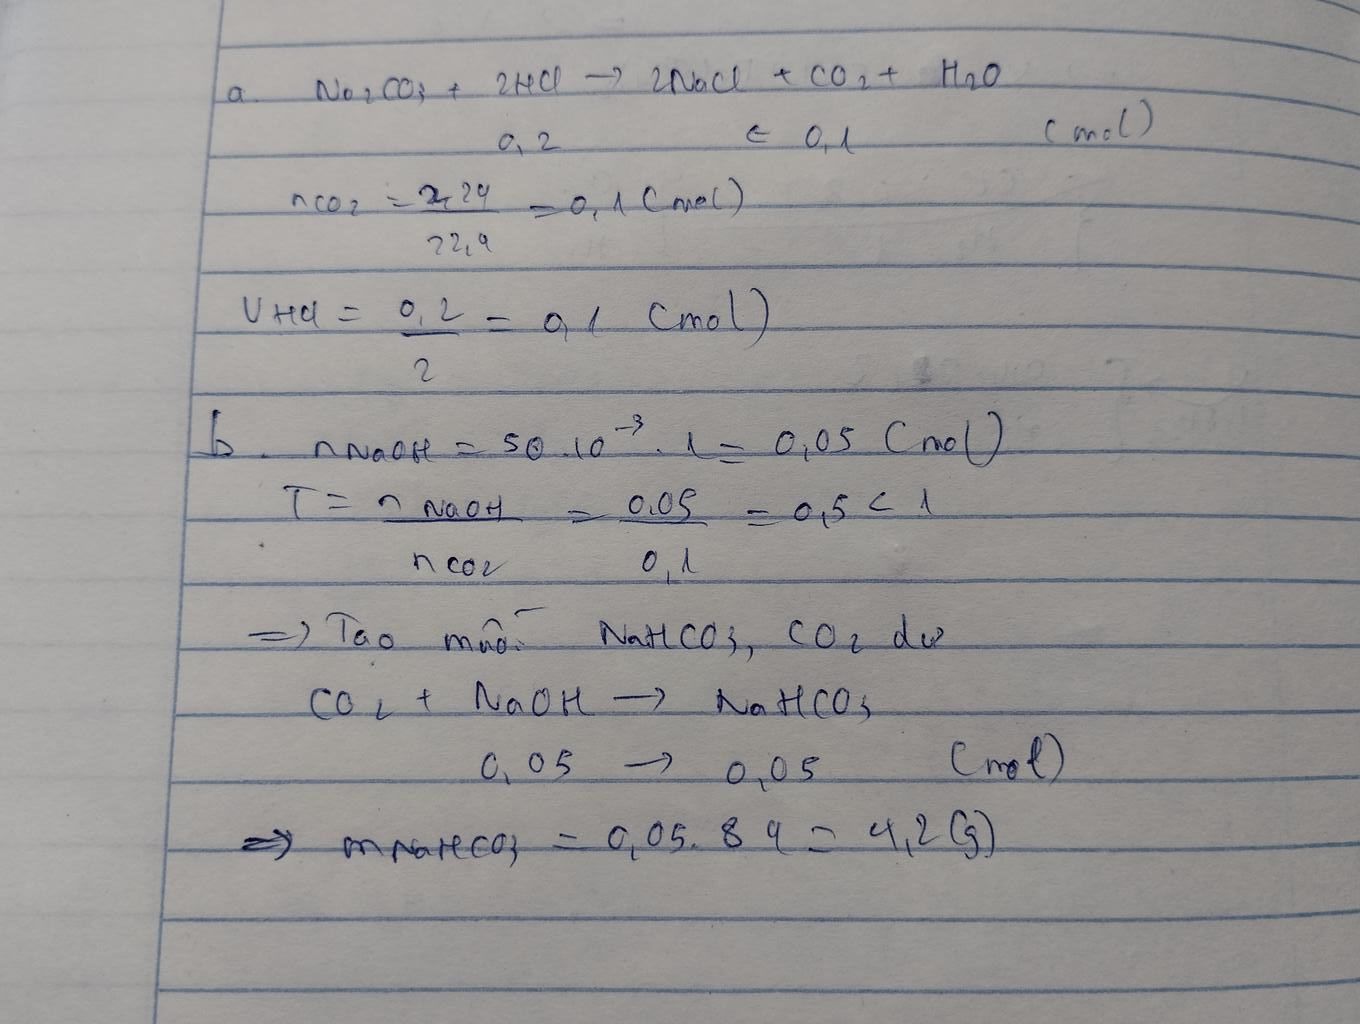 a. Na2CO3 + 2HCl → 2NaCl + CO2 + H2O
0,2 ← 0,1 (mol)
nCO2 = 2,24/22,4 = 0,1 (mol)
VHCl = 0,2/2 = 0,1 (mol)
b. nNaOH = 50.10^-3 . 1 = 0,05 (mol)
T = nNaOH/nCO2 = 0.05/0,1 = 0,5 < 1
=> Tạo muối NaHCO3, CO2 dư
CO2 + NaOH → NaHCO3
0,05 → 0,05 (mol)
=> mNaHCO3 = 0,05. 84 = 4,2 (g)